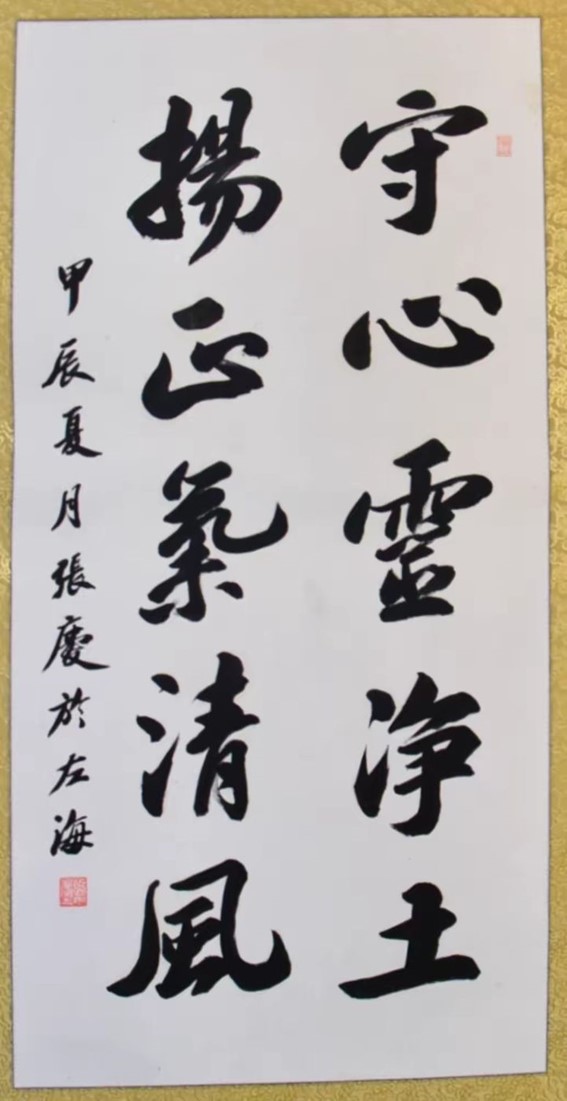 守心靈净土
揚正氣清風
甲辰夏月張慶於左海